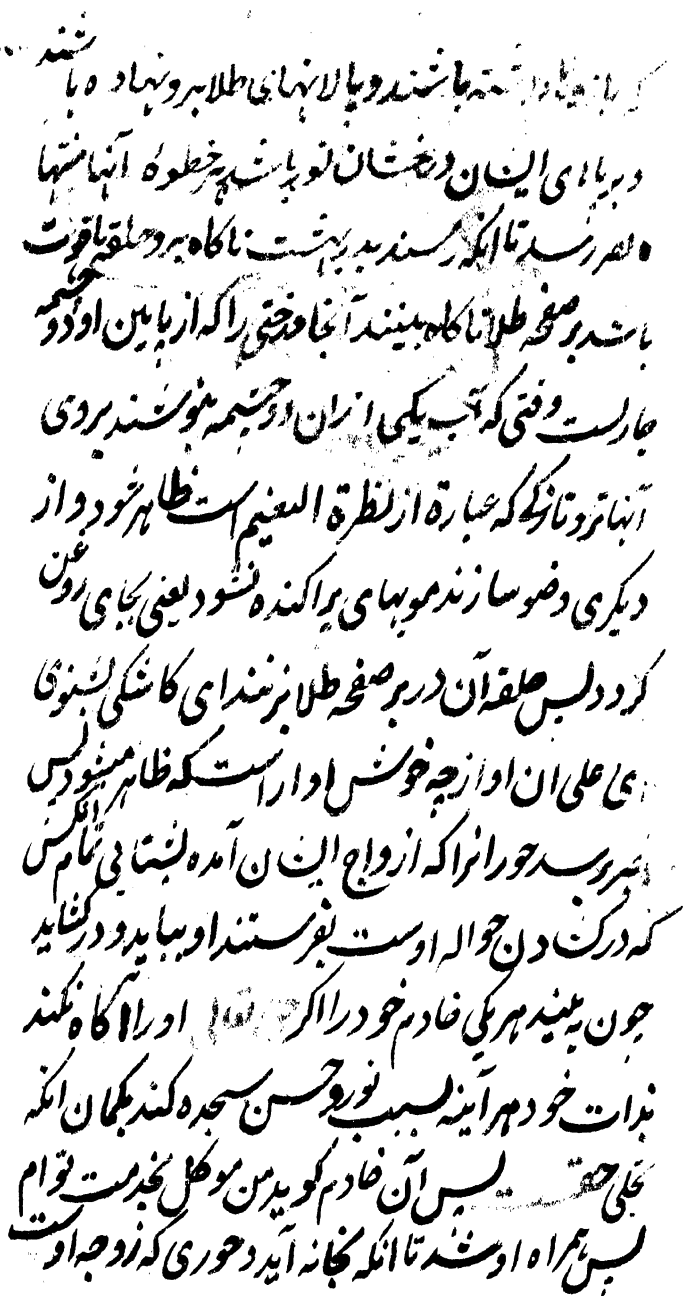 که بازوها داشته باشند و پالانهای طلا برو نهاده باشند
و برپاهای ایشان درخشان نور باشد هر خطوهٔ آنها منتهای
بصر رسد تا انکه رسند بدر بهشت ناکاه برو حلقه یاقوت سرخ
باشد بر صفحه طلا ناکاه بینند آنجا درختی را که از پایین او دو چشمه
جاریست وقتی که آب یکی ازان دو چشمه بنوشند بروی
آنها تر و تازکی که عبارة از نظرة النعیم است ظاهر شود و از
دیکری وضو سازند مویهای پراکنده نشود یعنی بجای روغن
کردد پس حلقه آن در بر صفحه طلا بزنند ای کاشکی بشنوی
ای علی ان اواز چه خوش اواز است که ظاهر میشود پس
خبر برسد حورانرا که ازواج ایشان آمده بشتابی تمام انکس
که در کشادن حواله اوست بفرستند او بیاید و در کشاید
چون به بیند هر یکی خادم خود را اکر حق تعالی او را آکاه نکند
بذات خود هر آینه بسبب نور و حسن سجده کند بکمان انکه
تجلی حقست پس آن خادم کوید من موکل بخدمت توام
پس همراه او شد تا انکه بخانه آید و حوری که زوجه اوست